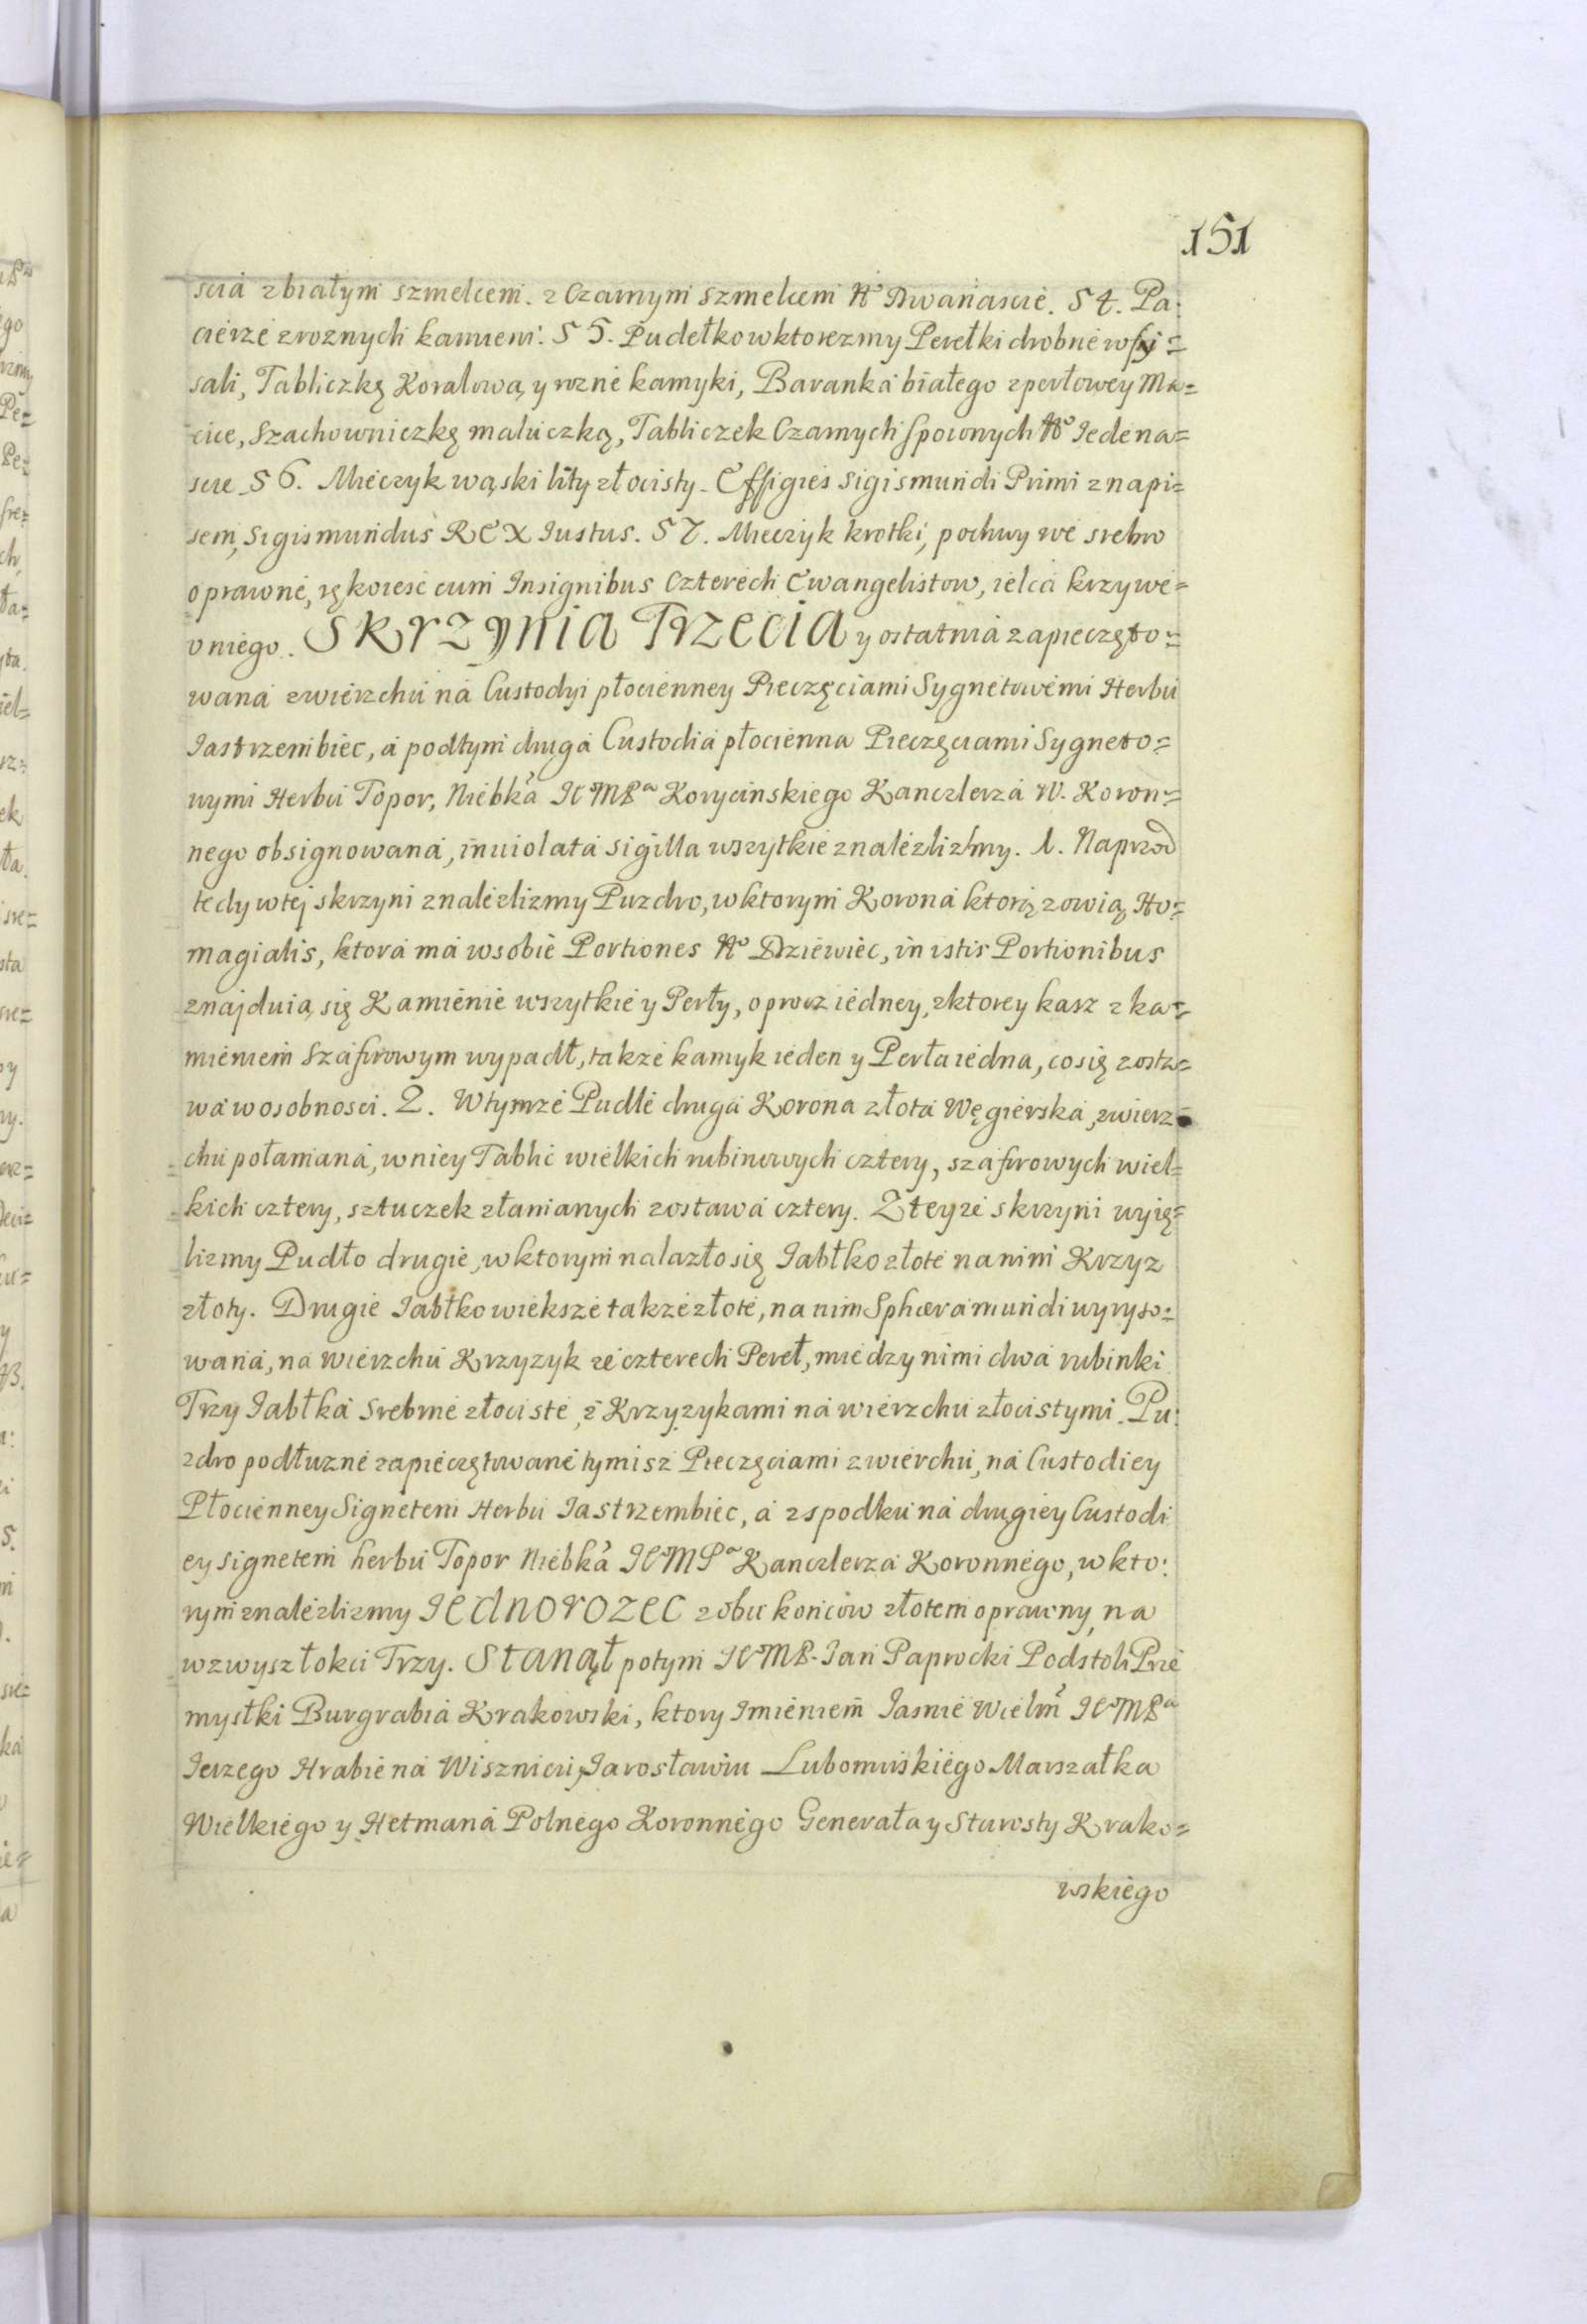 151
scia z białym szmelcem. z Czarnym szmelcem No Dwanascie. 54. Pa:
cierze z roznych kamieni. 55. Pudełko w ktorezmy Perełki drobne wsy=
sali, Tabliczkę Koralową y rozne kamyki, Baranka białego z perłowey Ma=
cice, Szachowniczkę maluczką, Tabliczek Czarnych spoionych No Iedena=
scie 56. Mieczyk wąski lity złocisty. Effigies Sigismundi Primi z napi=
sem, Sigismundus REX Iustus. 57. Mieczyk krotki, pochwy we srebro
oprawne, rękoiesc cum Insignibus Czterech Ewangelistow, ielca krzywe=
o niego. SKrzynia Trzecia y ostatnia zapieczęto=
wana zwierzchu na Custodyi płocienney Pieczęciami Sygnetowemi Herbu
Iastrzembiec, a podtym druga Custodia płocienna Pieczęciami Sygneto=
wymi Herbu Topor, Niebka IeMPa Korycinskiego Kanclerza W. Koron=
nego obsignowana, inviolata sigilla wszytkie znalezlizmy. 1. Naprzod
tedy wtej skrzyni znalezlizmy Puzdro, w ktorym Korona ktorą zowią Ho=
magialis, ktora ma wsobie Portiones No Dziewiec, in istis Portionibus
znajduią się Kamienie wszytkie y Perły, oprocz iedney, z ktorey kasz z ka=
mieniem Szafirowym wypadł, takze kamyk ieden y Perła iedna, co się zosta=
wa w osobnosci. 2. Wtymze Pudle druga Korona złota Węgierska, zwierz=
chu połamana, w niey Tablic wielkich rubinowych cztery, szafirowych wiel=
kich cztery, sztuczek złamanych zostawa cztery. Z teyze skrzyni wyię=
lizmy Pudło drugie, w ktorym nalazło się Iabłko złote na nim Krzyz
złoty. Drugie Iabłko wieksze takze złote, na nim Sphæra mundi wyryso=
wana, na wierzchu Krzyzyk ze czterech Pereł, miedzy nimi dwa rubinki
Trzy Iabłka Srebrne złociste, z Krzyzykami na wierzchu złocistymi. Pu:
zdro podłuzne zapieczętowane tymisz Pieczęciami zwierchu, na Custodiey
Płocienney Signetem Herbu Iastrzembiec, a zspodku na drugiey Custodi
ey signetem herbu Topor Niebka IeMPa Kanclerza Koronnego, w kto:
rym znalezlizmy IEdnorozec z obu koncow złotem oprawny, na
wzwysz łokci Trzy. Stanął potym IeMP. Ian Paprocki Podstoli Prze
mysłki Burgrabia Krakowski, ktory Imieniem Iasnie Wielm IeMPa
Ierzego Hrabie na Wisznicu, Iarosławiu Lubomirskiego Marszałka
Wielkiego y Hetmana Polnego Koronnego Generała y Starosty Krako=
wskiego